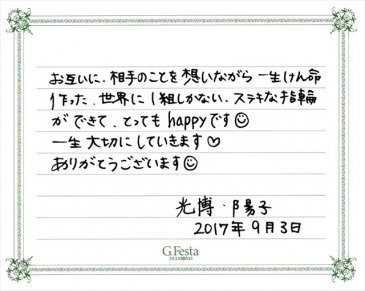 お互いに、相手のことを想いながら一生けん命
作った、世界に1組しかない、ステキな指輪
ができて、とってもhappyです☺
一生大切にしていきます♡
ありがとうございます☺
光博・陽子
2017年9月3日
G.Festa
DIAMOND